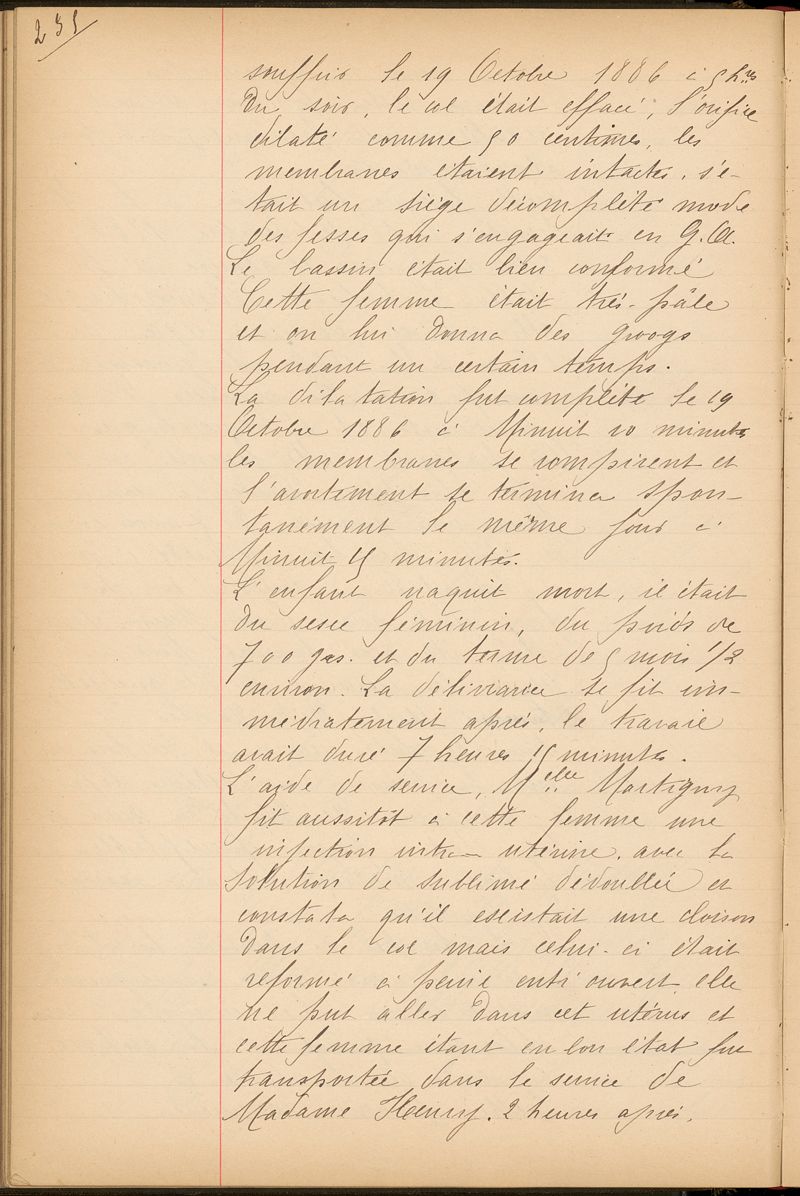 235
souffrir le 19 Octobre 1886 à 5 h.res
Du soir, le col était effacé, l'orifice
dilaté comme 50 centimes, les
membranes étaient intactes, s'é-
tait un siège décomplété mode
des fesses qui s'engageait en G.A.
Le bassin était bien conformé
Cette femme était très-pâle
et on lui donna des groogs
pendant un certain temps.
La dilatation fut complète le 19
Octobre 1886 à Minuit 10 minutes
les membranes se rompirent et
l'avortement se termina spon-
tanément le même jour à
Minuit 15 minutes.
L'enfant naquit mort, il était
Du sexe féminin, du poids de
700 grs. et du terme de 5 mois 1/2
environ. La délivrance se fit im-
médiatement après, le travail
avait duré 7 heures 15 minutes.
L'aide de service, Melle Martigny
fit aussitôt à cette femme une
injection intra-utérine, avec la
solution de sublimé dédoublée et
constata qu'il existait une cloison
Dans le col mais celui-ci était
reformé à peine entr'ouvert elle
ne put aller Dans cet utérus et
cette femme étant en bon état fut
transportée dans le service de
Madame Henry. 2 heures après.